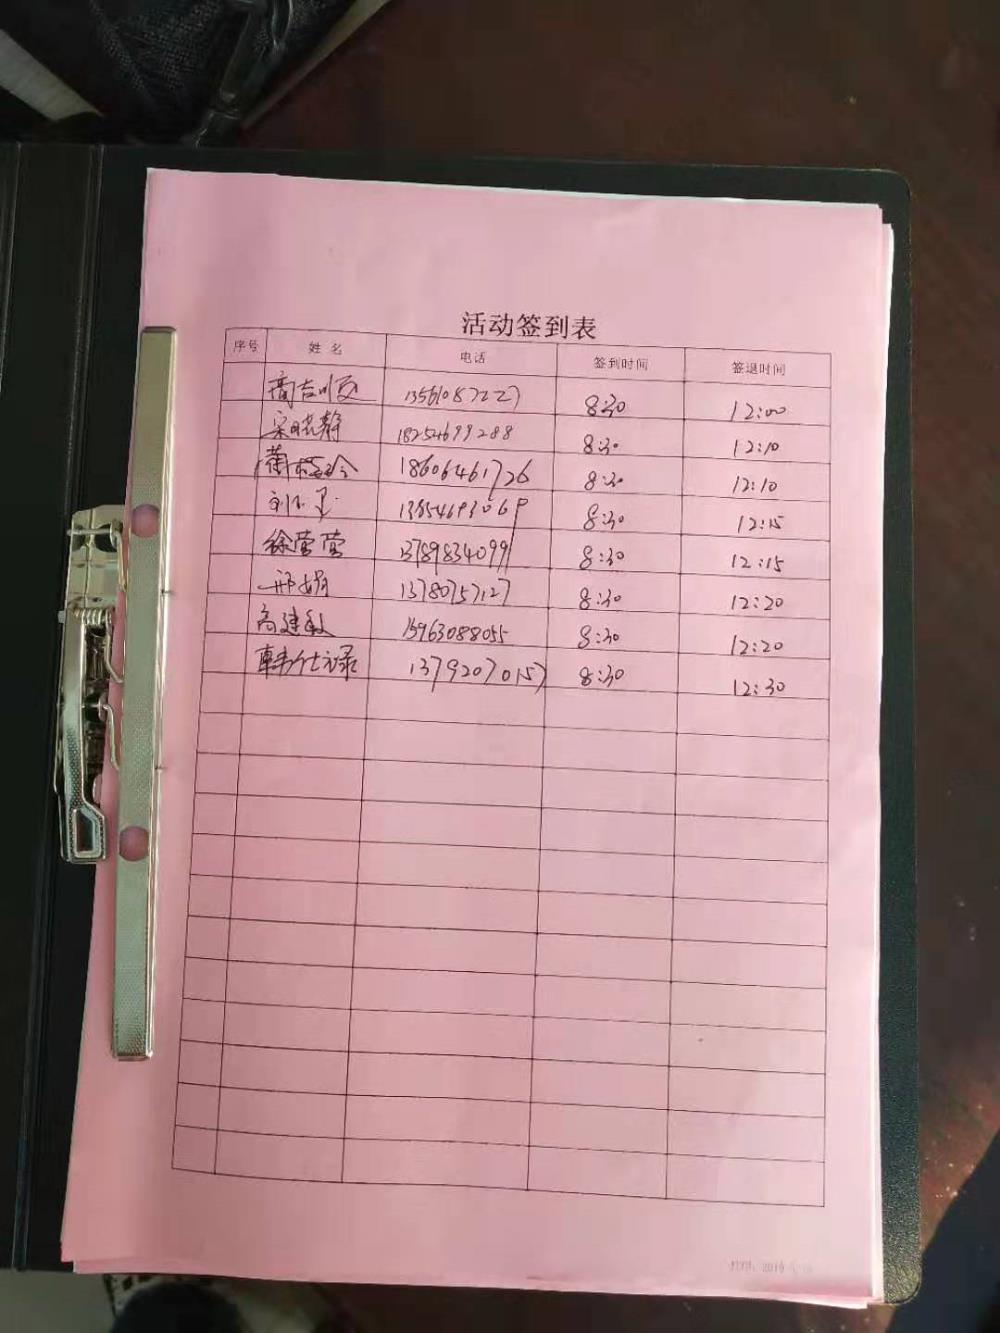 活动签到表
序号 姓名 电话 签到时间 签退时间
13561087227 8:30 12:00
宋晓静 18254699288 8:30 12:10
18606461726 8:30 12:10
8:30 12:15
徐莹莹 13789834099 8:30 12:15
邢娟 13780757127 8:30 12:20
高建敏 15963088055 8:30 12:20
韩仕录 13792070157 8:30 12:30